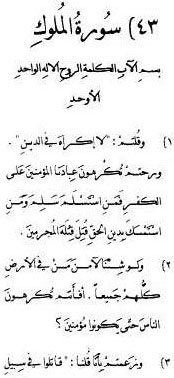 ٤٣) سورة الملوك
بسم الآب الكلمة الروح الإله الواحد
الأوحد
١) وقلتم : " لا إكراه في الدين " .
ورحتم تُكرهون عبادنا المؤمنين على
الكفر فمن استسلم سلم ومن
استمسك بدين الحق قُتل قتلة المجرمين .
٢) ولو شئنا لآمن من في الأرض
كلهم جميعاً . أفأنتم تُكرهون
الناس حتى يكونوا مؤمنين ؟
٣) وزعمتم بأنا قلنا : " قاتلوا في سبيل